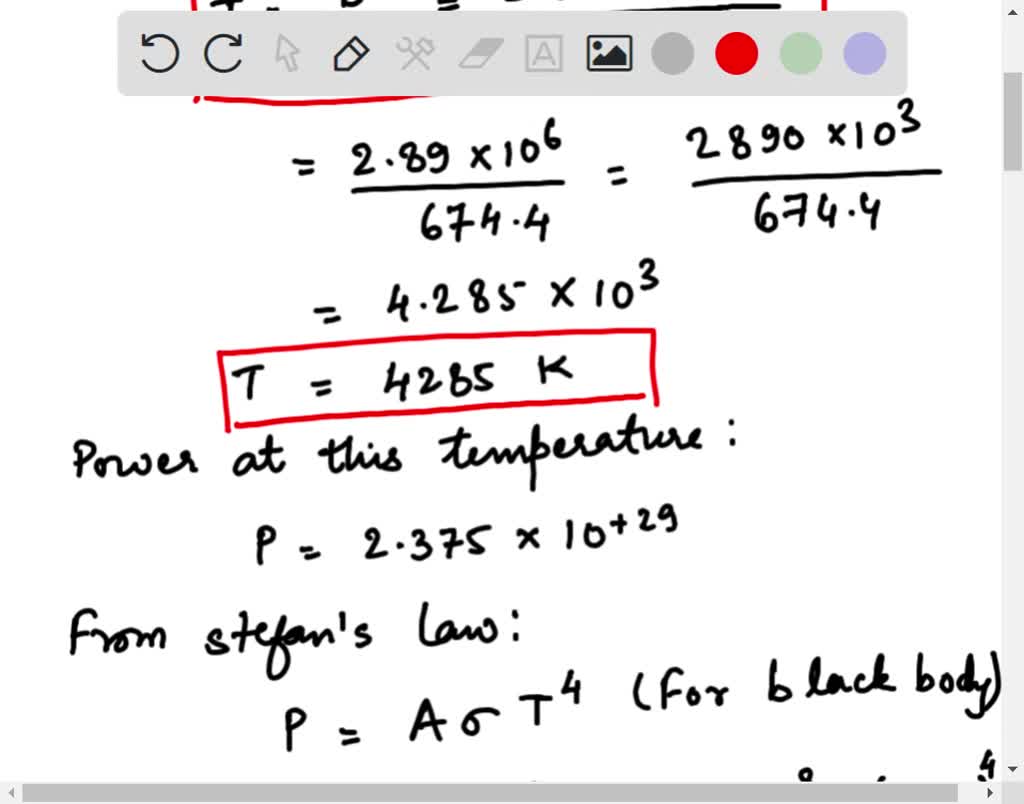 = 2.89 ×10^6 / 674.4 = 2890 ×10^3 / 674.4
= 4.285 × 10^3
T = 4285 K
Power at this temperature :
P = 2.375 × 10^+29
From stefan's law :
P = A σ T^4 (For black body)